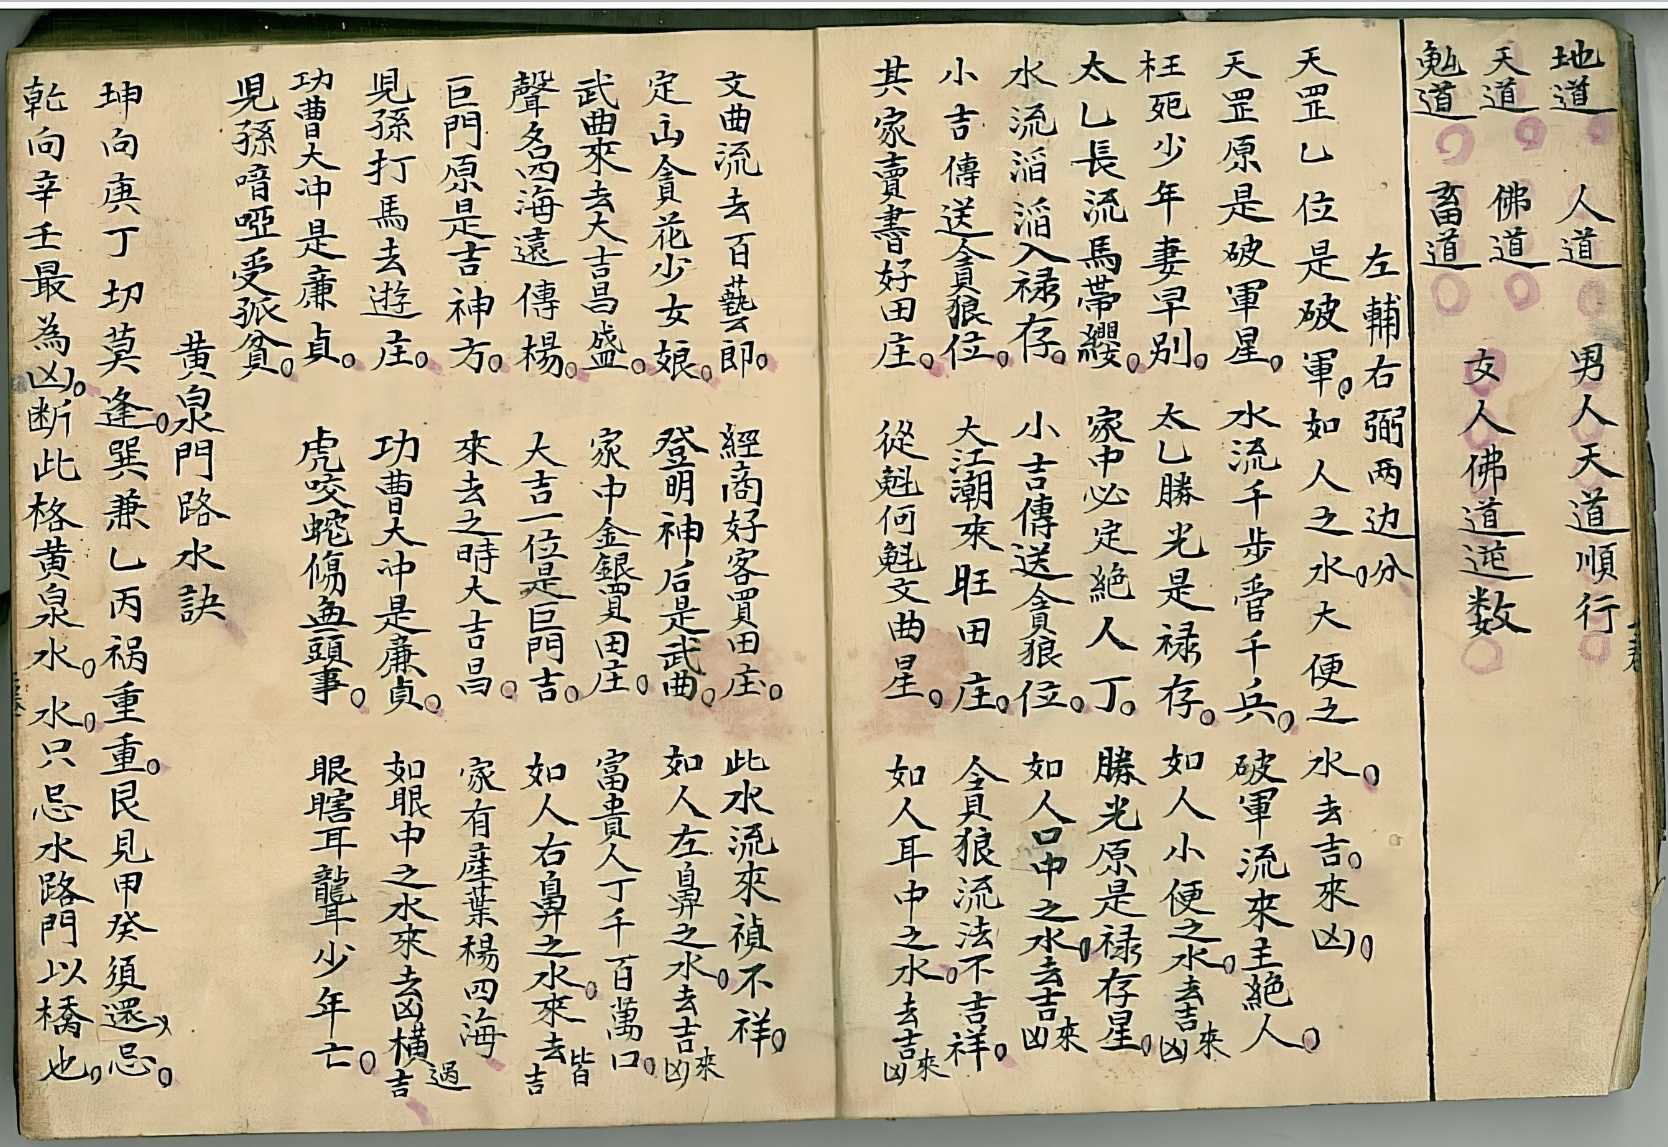 地道 人道 男人天道順行
天道 佛道 女人佛道逆数
鬼道 畜道
左輔右弼两边分
天罡乚位是破軍。如人之水大便之水。去吉。來凶。
天罡原是破軍星。水流千步管千兵。破軍流來主絕人。
枉死少年妻早别。太乚勝光是禄存。如人小便之水。去吉來凶
太乚長流馬帶纓。家中必定絕人丁。勝光原是禄存星。
水流滔滔入禄存。小吉傳送貪狼位。如人口中之水。去吉來凶
小吉傳送貪狼位。大江潮來旺田庄。貪狼流法不吉祥。
其家賣書好田庄。從魁何魁文曲星。如人耳中之水。去吉來凶
文曲流去百藝郎。經商好客買田庄。此水流來禎不祥。
定出貪花少女娘。登明神后是武曲。如人左鼻之水。去吉來凶
武曲來去大吉昌盛。家中金銀買田庄。富貴人丁千百萬口。
聲名四海遠傳楊。大吉一位是巨門吉。如人右鼻之水。來去皆吉
巨門原是吉神方。來去之時大吉昌。家有産葉楊四海
児孫打馬去遊庄。功曹大冲是亷貞。如眼中之水來去凶橫過吉
功曹大冲是亷貞。虎咬蛇傷血頭事。眼瞎耳聾少年亡。
児孫喑啞受孤貧。
黄泉門路水訣
坤向庚丁切莫逢。巽兼乚丙禍重重。艮見甲癸須還忌。
乾向辛壬最為凶。断此格黄泉水。水。只忌水路門以橋也。